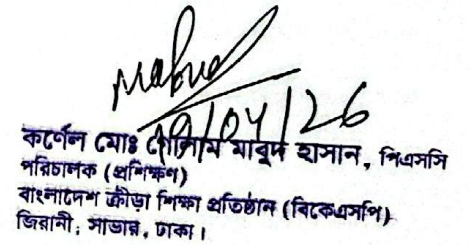 mabud
19/04/26
কর্ণেল মোঃ গোলাম মাবুদ হাসান, পিএসসি
পরিচালক (প্রশিক্ষণ)
বাংলাদেশ ক্রীড়া শিক্ষা প্রতিষ্ঠান (বিকেএসপি)
জিরানী, সাভার, ঢাকা।